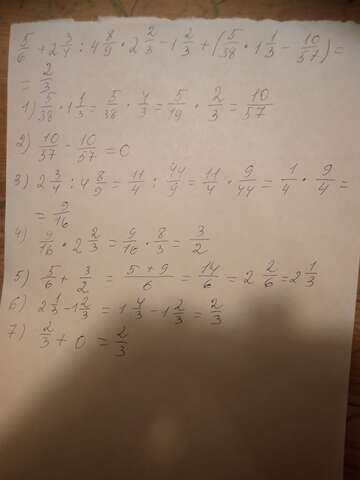 5/6 + 2 3/4 : 4 8/9 · 2 2/3 - 1 2/3 + (5/38 · 1 1/3 - 10/57) =
= 2/3
1) 5/38 · 1 1/3 = 5/38 · 4/3 = 5/19 · 2/3 = 10/57
2) 10/57 - 10/57 = 0
3) 2 3/4 : 4 8/9 = 11/4 : 44/9 = 11/4 · 9/44 = 1/4 · 9/4 =
= 9/16
4) 9/16 · 2 2/3 = 9/16 · 8/3 = 3/2
5) 5/6 + 3/2 = 5+9/6 = 14/6 = 2 2/6 = 2 1/3
6) 2 1/3 - 1 2/3 = 1 4/3 - 1 2/3 = 2/3
7) 2/3 + 0 = 2/3